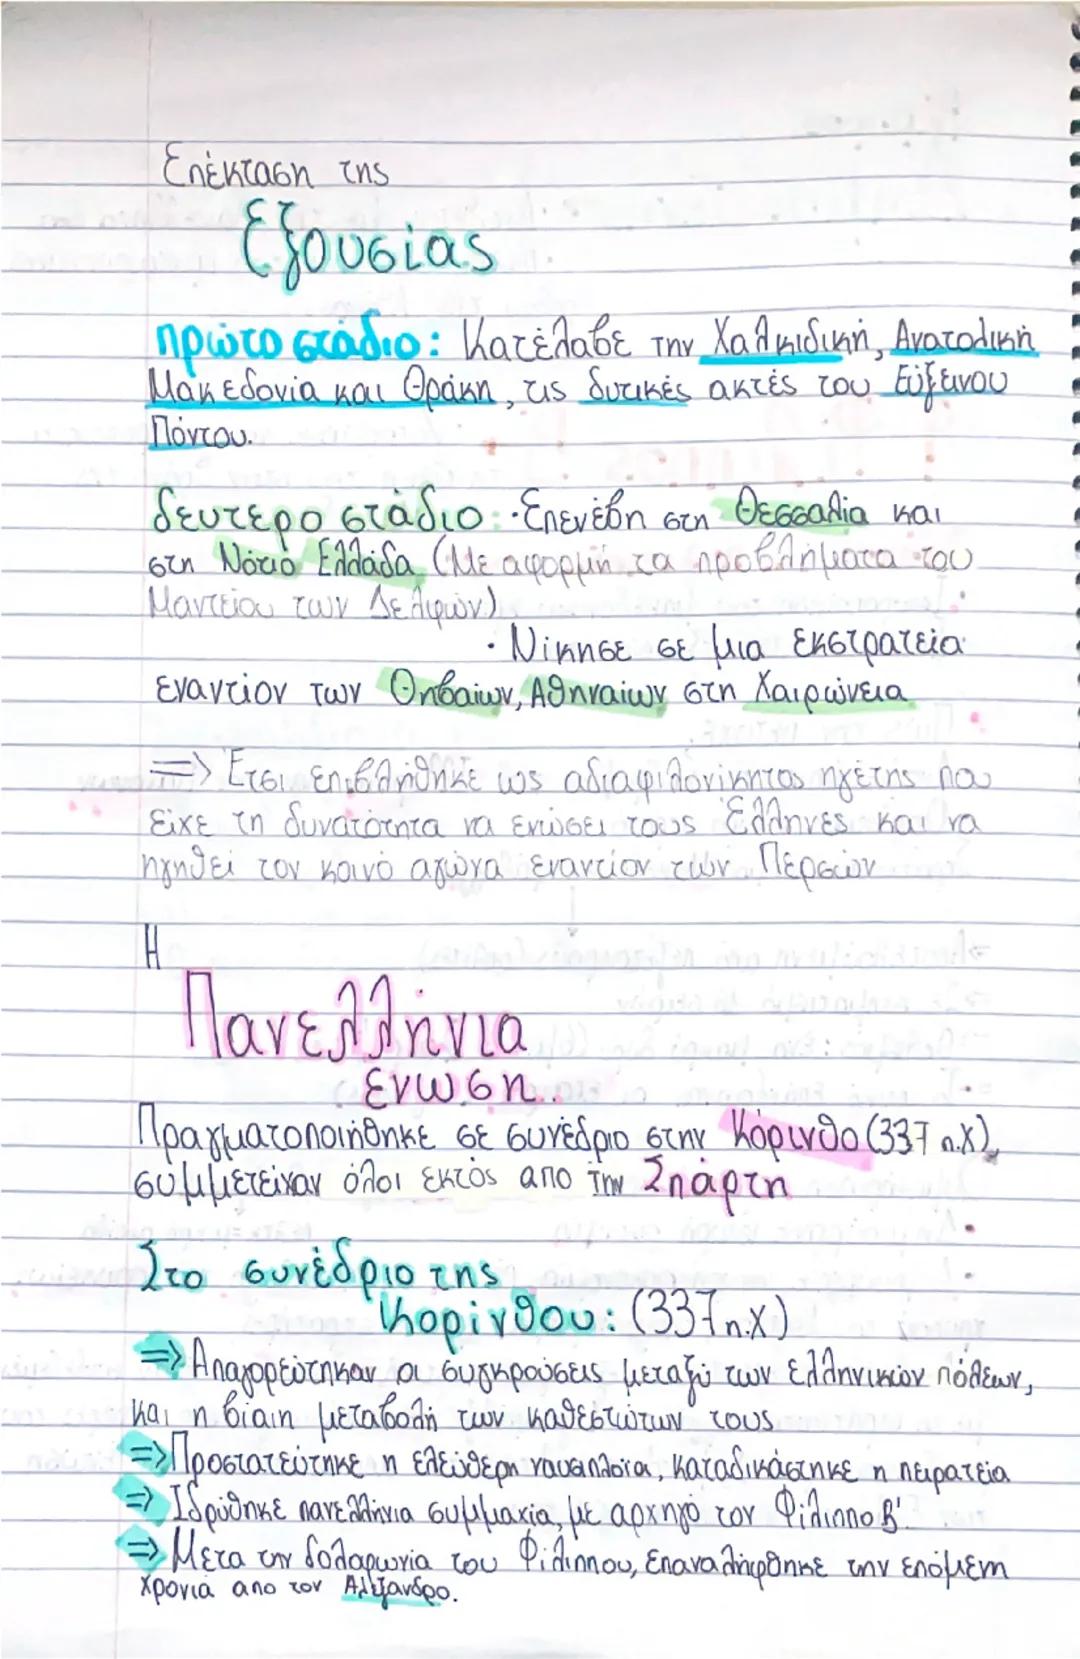 Επέκταση της
Εξουσίας
πρώτο στάδιο: Κατέλαβε την Χαλκιδική, Ανατολική
Μακεδονία και Θράκη, τις δυτικές ακτές του Εύξεινου
Πόντου.
δεύτερο στάδιο: · Επενέβη στη Θεσσαλία και
στη Νότιο Ελλάδα (Με αφορμή τα προβλήματα του
Μαντείου των Δελφών)
· Νίκησε σε μια εκστρατεία
εναντίον των Θηβαίων, Αθηναίων στη Χαιρώνεια
=> Έτσι επιβλήθηκε ως αδιαφιλονίκητος ηγέτης που
είχε τη δυνατότητα να ενώσει τους Έλληνες και να
ηγηθεί τον κοινό αγώνα εναντίον των Περσών
Η
Πανελλήνια
ένωση..
Πραγματοποιήθηκε σε συνέδριο στην Κόρινθο (337 π.Χ),
συμμετείχαν όλοι εκτός από την Σπάρτη
Στο συνέδριο της
Κορίνθου: (337 π.Χ)
=> Απαγορεύτηκαν οι συγκρούσεις μεταξύ των ελληνικών πόλεων,
και η βίαιη μεταβολή των καθεστώτων τους
=> Προστατεύτηκε η ελεύθερη ναυσιπλοΐα, καταδικάστηκε η πειρατεία
=> Ιδρύθηκε πανελλήνια συμμαχία, με αρχηγό τον Φίλιππο Β'.
=> Μετα την δολοφωνία του Φιλίππου, επαναλήφθηκε την επόμενη
χρονιά απο τον Αλέξανδρο.